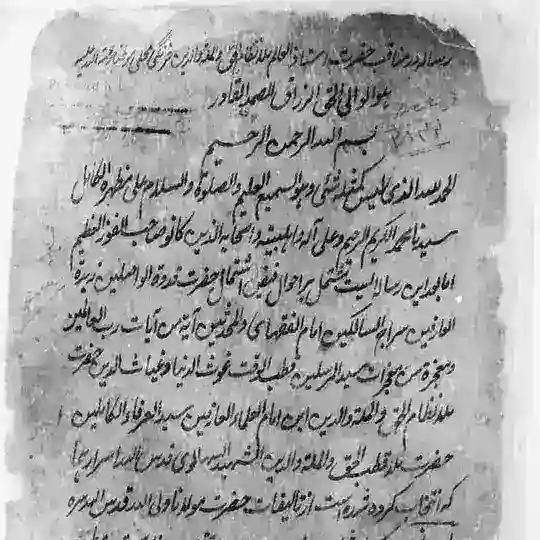 رساله در مناقب حضرت استاذ العالم ملا نظام الحق والملة والدین فرنگی محلی
هو الوالی الحق الرزاق الصمد القادر
بسم الله الرحمن الرحیم
الحمد لله الذی لیس کمثله شئی وهو السمیع العلیم والصلوة والسلام علی مظهره الکامل
سیدنا محمد الکریم الرحیم وعلی آله واهلبیته واصحابه الذین کانوا صاحب الفوز العظیم
اما بعد این رساله ایست مشتمل بر احوال فیض اشتمال حضرت قدوة الواصلین زبدة
العارفین سراج السالکین امام الفقهاء والمحدثین آیة من آیات رب العالمین
ومعجزة من معجزات سید المرسلین قطب الوقت غوث الدنیا وغیاث الدین حضرت
ملا نظام الحق والملة والدین ابن امام العلماء العارفین سید العرفاء الکاملین
حضرت ملا قطب الحق والملة والدین الشهید السهالوی قدس الله اسرارهما
که انتخاب کرده شده است از تالیفات حضرت مولانا ولی الله قدس الله سره